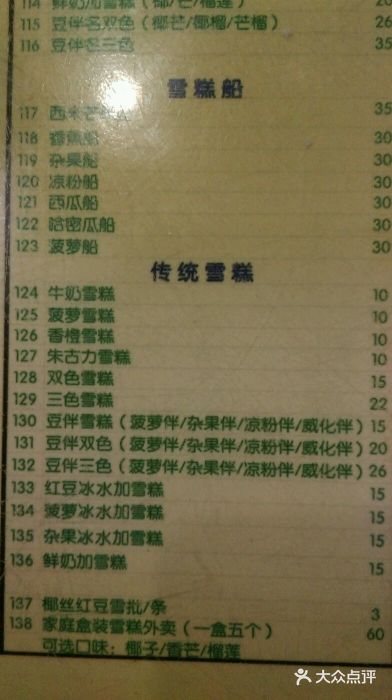 114 鲜奶加雪糕（椰/芒/榴莲） 20
115 豆伴名双色（椰芒/椰榴/芒榴） 26
116 豆伴名三色 35
雪糕船
117 西米芒 35
118 香蕉船 30
119 杂果船 30
120 凉粉船 30
121 西瓜船 30
122 哈密瓜船 30
123 菠萝船 30
传统雪糕
124 牛奶雪糕 10
125 菠萝雪糕 10
126 香橙雪糕 10
127 朱古力雪糕 10
128 双色雪糕 15
129 三色雪糕 22
130 豆伴雪糕（菠萝伴/杂果伴/凉粉伴/威化伴） 15
131 豆伴双色（菠萝伴/杂果伴/凉粉伴/威化伴） 20
132 豆伴三色（菠萝伴/杂果伴/凉粉伴/威化伴） 26
133 红豆冰水加雪糕 15
134 菠萝冰水加雪糕 15
135 杂果冰水加雪糕 15
136 鲜奶加雪糕 15
137 椰丝红豆雪批/条 3
138 家庭盒装雪糕外卖（一盒五个） 60
可选口味：椰子/香芒/榴莲
大众点评